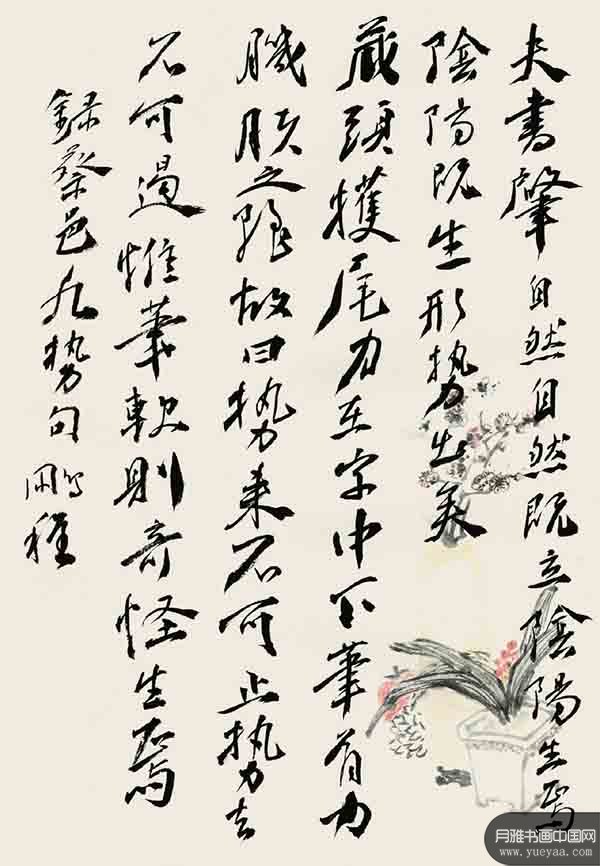 夫書肇自然自然既立陰陽生焉
陰陽既生形势出矣
藏頭擭尾力在字中下筆有力
肤之麗故曰势来不可止势去
不可遏惟筆軟則奇怪生焉
録蔡邕九势句 鵬程
月雅书画中国网
www.yueyaa.com